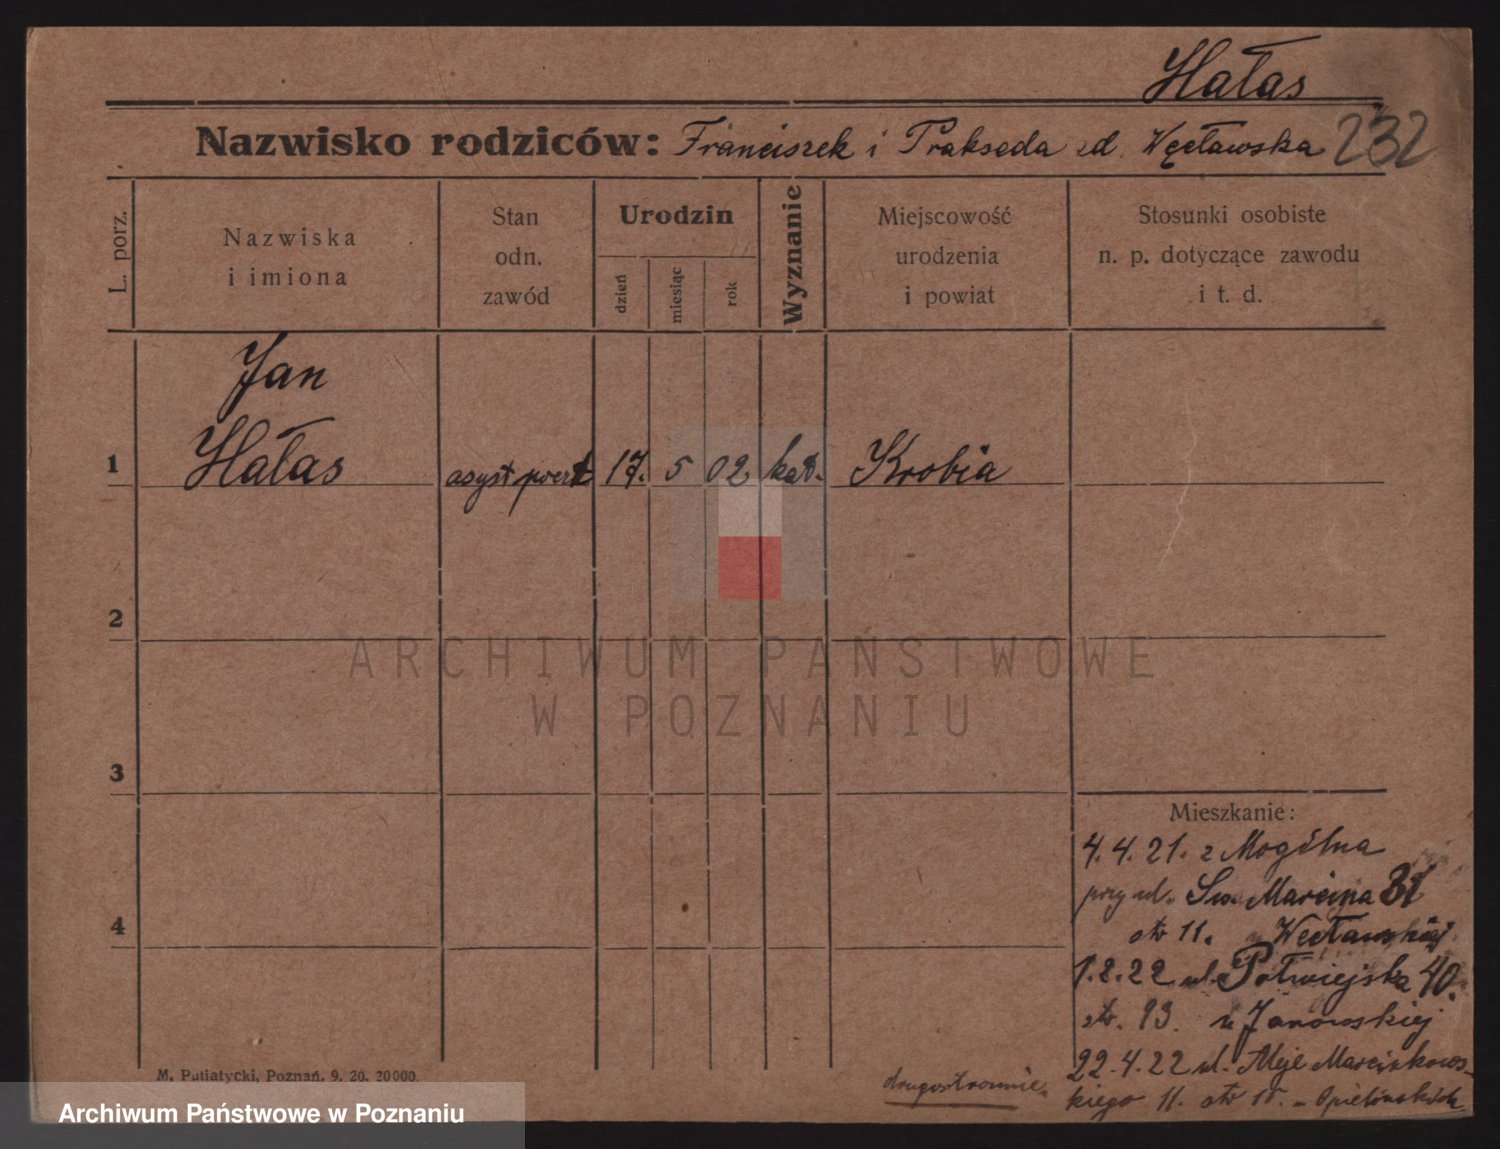 Hałas
Nazwisko rodziców: Franciszek i Prakseda zd. Węcławska 232
L. porz.
Nazwiska
i imiona
Stan
odn.
zawód
Urodzin
dzień
miesiąc
rok
Wyznanie
Miejscowość
urodzenia
i powiat
Stosunki osobiste
n. p. dotyczące zawodu
i t. d.
Jan
1 Hałas asyst poczt 17. 5 02 kat. Krobia
2
ARCHIWUM PAŃSTWOWE
W POZNANIU
3
Mieszkanie:
4. 4. 21. z Mogilna
przy ul. Św. Marcina
4
str 11. u Węcławskiej
1. 2. 22 ul. Półwiejska 40.
str. 13. u Janowskiej
22. 4. 22 ul. Aleje Marcinkows-
kiego 11. str
drugostronnie
M. Putiatycki, Poznań. 9. 20. 20000
Archiwum Państwowe w Poznaniu